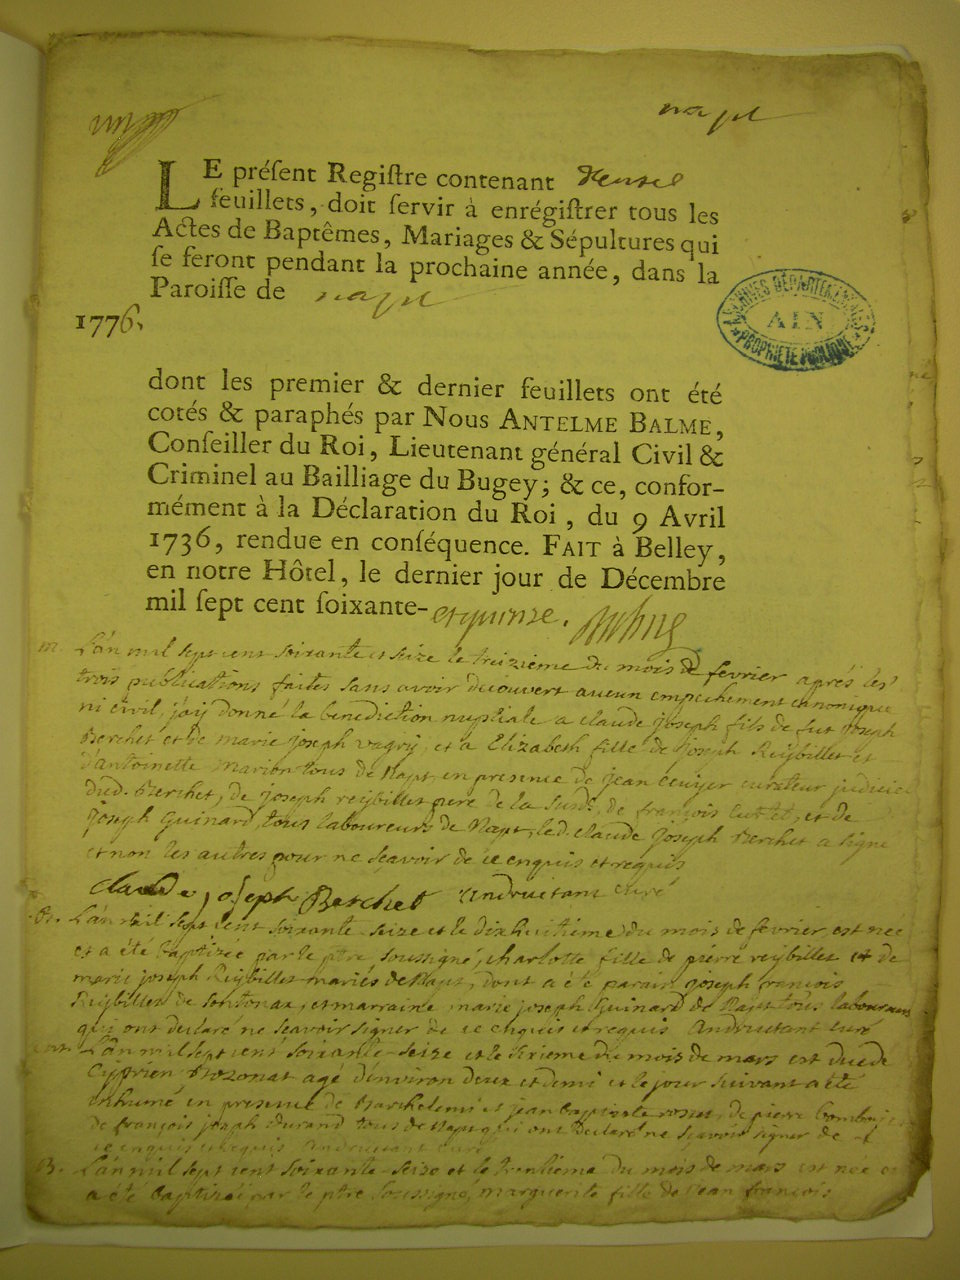 napt
LE préſent Regiſtre contenant
feuillets, doit ſervir à enrégiſtrer tous les
Actes de Baptêmes, Mariages & Sépultures qui
ſe feront pendant la prochaine année, dans la
Paroiſſe de napt
1776.
ARCHIVES DÉPARTEMENTALES
AIN
PROPRIÉTÉ PUBLIQUE
dont les premier & dernier feuillets ont été
cotés & paraphés par NOUS ANTELME BALME,
Conſeiller du Roi, Lieutenant général Civil &
Criminel au Bailliage du Bugey; & ce, confor-
mément à la Déclaration du Roi, du 9 Avril
1736, rendue en conſéquence. FAIT à Belley,
en notre Hôtel, le dernier jour de Décembre
mil ſept cent ſoixante- et quinze.
m. L'an mil sept cent soixante et seize le treizieme du mois de fevrier aprés les
trois publications faites sans avoir découvert aucun empechement canonique
ni civil, j'aij donné la benediction nuptiale a claude joseph fils de fut joseph
Berchet et de marie joseph vugrij, et a Elizabeth fille de joseph Reijbillet et
d'antoinette marion tous de Napt, en presence de jean cuvijer curateur judiciel
dud. Berchet, de joseph reijbillet pere de la susd. de françois et de
joseph Guinard, tous laboureurs de Napt, led. claude joseph Berchet a signé
et non les autres pour ne scavoir de ce enquis et requis
claude joseph Berchet Andruetant curé
B. L'an mil sept cent soixante-seize et le dixhuitième du mois de fevrier est née
et a été baptizée par le ptre soussigné, charlotte fille de piérre reijbillet et de
marie joseph Reijbillet mariés de Napt, dont a été parain joseph françois
Reijbillet de sontonax, et marraine marie joseph Guinard de Napt tous laboureurs
qui ont declaré ne scavoir signer de ce enquis et requis Andruetant curé
L'an mil sept cent soixante-seize et le sixieme du mois de mars est decede
Cyprien agé d'environ deux et demi et le jour suivant a été
inhumé en presence de Barthelemi et jean baptiste rosset, de pierre
de françois joseph durand tous de Napt qui ont declaré ne scavoir signer de
ce enquis et requis Andruetant curé
B. L'an mil sept cent soixante-seize et le trentieme du mois de mars est née et
a été baptizée par le ptre soussigné, marguerite fille de jean françois